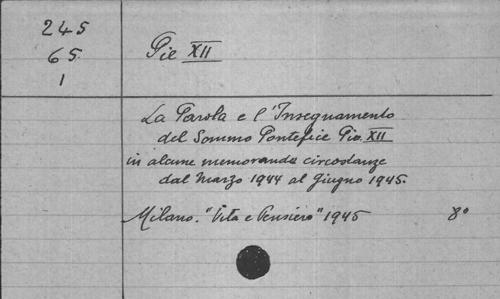 245
65
1
Pie XII
La Parola e l'Insegnamento
del Sommo Pontefice Pio XII
in alcune memorande circostanze
dal Marzo 1944 al Giugno 1945.
Milano. "Vita e Pensiero" 1945 8°